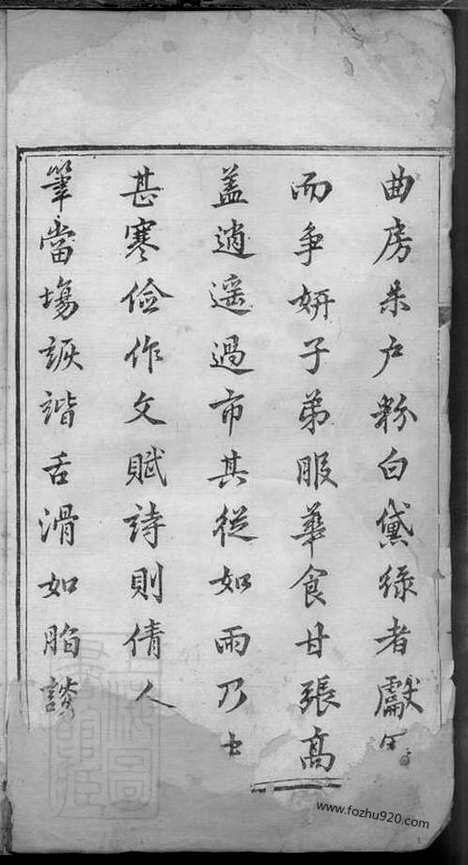 曲房朱户粉白黛綠者獻
而争妍子弟服華食甘張高
盖逍遥過市其從如雨乃士
甚寒儉作文賦詩則倩人
筆當塲詼諧舌滑如脂
www.fozhu920.com